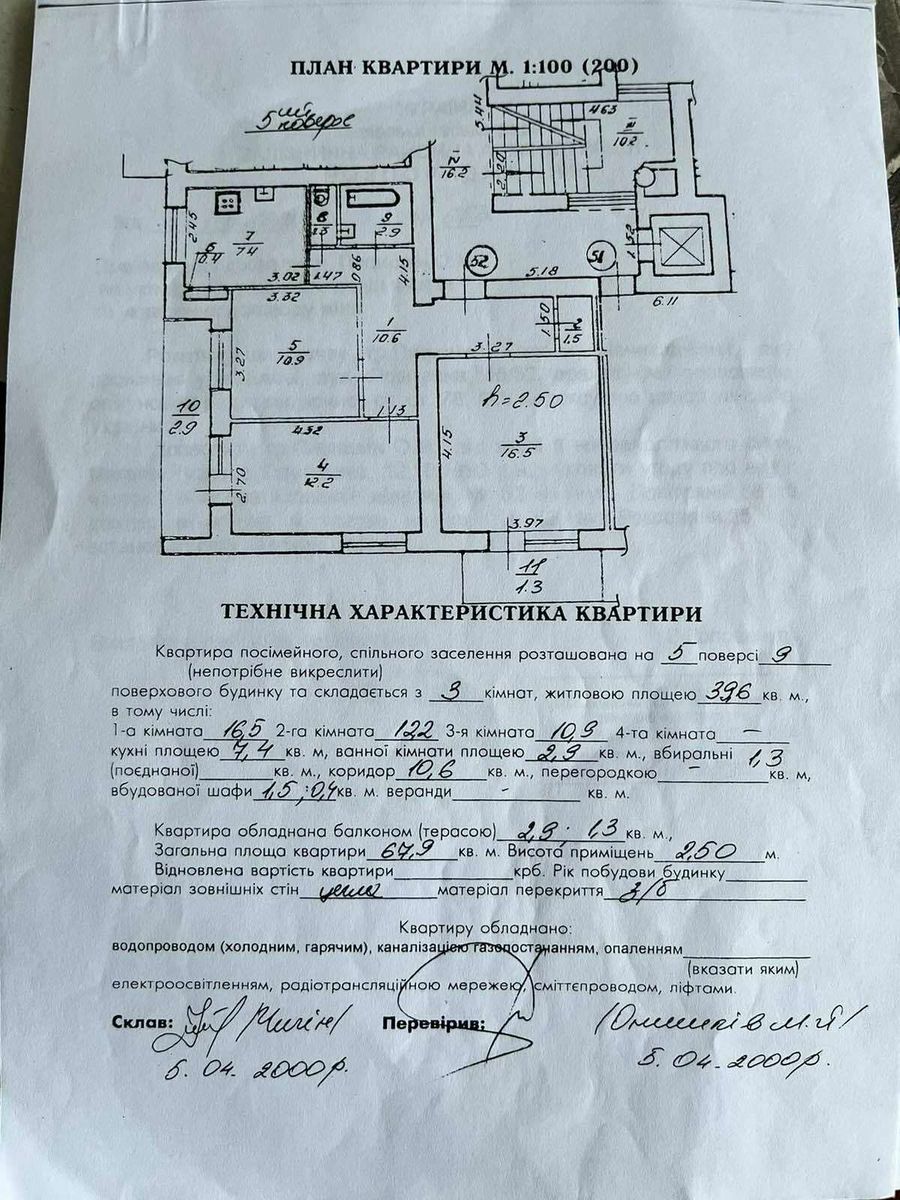 ПЛАН КВАРТИРИ М. 1:100 (200)
5ий поверх
5.44
4.63
III
10.2
2.20
16.2
2.45
6
0.4
7
7.4
8
1.3
9
2.9
3.02
1.47
0.86
4.15
52
51
5.18
1.52
6.11
3.32
3.27
5
10.9
1
10.6
1.50
2
1.5
3.27
10
2.9
1.13
h=2.50
4.32
4
12.2
2.70
4.15
3
16.5
3.97
11
1.3
ТЕХНІЧНА ХАРАКТЕРИСТИКА КВАРТИРИ
Квартира посімейного, спільного заселення розташована на 5 поверсі 9
(непотрібне викреслити)
поверхового будинку та складається з 3 кімнат, житловою площею 39,6 кв. м.,
в тому числі:
1-а кімната 16,5 2-га кімната 12,2 3-я кімната 10,9 4-та кімната –
кухні площею 7,4 кв. м, ванної кімнати площею 2,9 кв. м., вбиральні 1,3
(поєднаної) кв. м., коридор 10,6 кв. м., перегородкою – кв. м,
вбудованої шафи 1,5; 0,4 кв. м. веранди - кв. м.
Квартира обладнана балконом (терасою) 2,9; 1,3 кв. м.,
Загальна площа квартири 67,9 кв. м. Висота приміщень 2,50 м.
Відновлена вартість квартири крб. Рік побудови будинку
матеріал зовнішніх стін цегла матеріал перекриття з/б
Квартиру обладнано:
водопроводом (холодним, гарячим), каналізацією газопостачанням, опаленням
(вказати яким)
електроосвітленням, радіотрансляційною мережею, сміттєпроводом, ліфтами.
Склав: Перевірив:
5.04.2000р. 5.04.2000р.